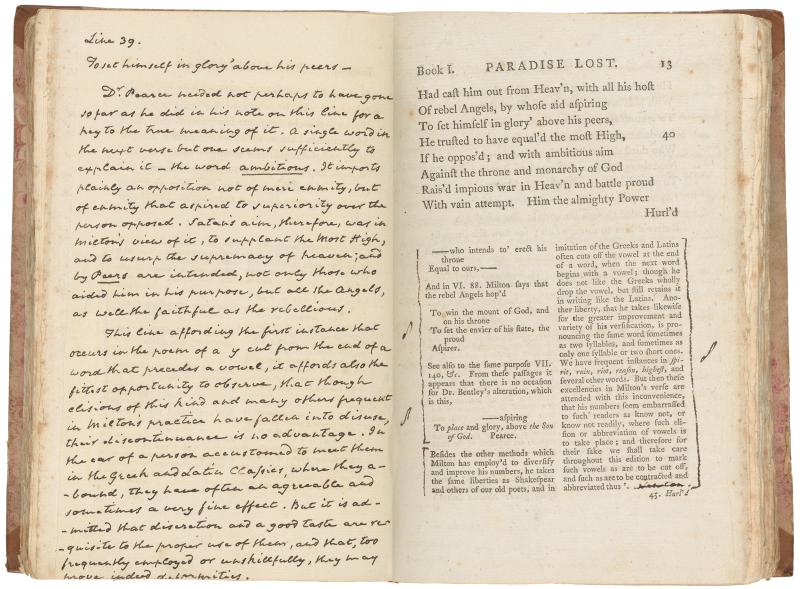 Line 39.
To set himself in glory' above his peers —
Dr. Pearce needed not perhaps to have gone
so far as he did in his note on this line for a
key to the true meaning of it. A single word in
the next verse but one seems sufficiently to
explain it — the word ambitious. It imports
plainly an opposition not of mere enmity, but
of enmity that aspired to superiority over the
person opposed. Satan's aim, therefore, was in
Milton's view of it, to supplant the Most High,
and to usurp the supremacy of heaven; and
by Peers are intended, not only those who
aided him in his purpose, but all the Angels,
as well the faithful as the rebellious.
This line affording the first instance that
occurs in the poem of a y cut from the end of a
word that precedes a vowel, it affords also the
fittest opportunity to observe, that though
elisions of this kind and many others frequent
in Miltons practice have fallen into disuse,
their discontinuance is no advantage. In
the ear of a person accustomed to meet them
in the Greek and Latin Classics, where they a-
-bound, they have often an agreeable and
sometimes a very fine effect. But it is ad-
-mitted that discretion and a good taste are re-
-quisite to the proper use of them, and that, too
frequently employed or unskillfully, they may
prove indeed deformities.
Book I. PARADISE LOST. 13
Had caſt him out from Heav'n, with all his hoſt
Of rebel Angels, by whoſe aid aſpiring
To ſet himſelf in glory' above his peers,
He truſted to have equal'd the moſt High, 40
If he oppos'd; and with ambitious aim
Againſt the throne and monarchy of God
Rais'd impious war in Heav'n and battle proud
With vain attempt. Him the almighty Power
Hurl'd
——who intends to' erect his
throne
Equal to ours,——
And in VI. 88. Milton ſays that
the rebel Angels hop'd
To win the mount of God, and
on his throne
To ſet the envier of his ſtate, the
proud
Aſpirer.
See alſo to the ſame purpoſe VII.
140, &c. From theſe paſſages it
appears that there is no occaſion
for Dr. Bentley's alteration, which
is this,
——aſpiring
To place and glory, above the Son
of God. Pearce.
Beſides the other methods which
Milton has employ'd to diverſify
and improve his numbers, he takes
the ſame liberties as Shakeſpear
and others of our old poets, and in
imitation of the Greeks and Latins
often cuts off the vowel at the end
of a word, when the next word
begins with a vowel; though he
does not like the Greeks wholly
drop the vowel, but ſtill retains it
in writing like the Latins. Ano-
ther liberty, that he takes likewiſe
for the greater improvement and
variety of his verſification, is pro-
nouncing the ſame word ſometimes
as two ſyllables, and ſometimes as
only one ſyllable or two ſhort ones.
We have frequent inſtances in ſpi-
rit, ruin, riot, reaſon, higheſt, and
ſeveral other words. But then theſe
excellencies in Milton's verſe are
attended with this inconvenience,
that his numbers ſeem embarraſſed
to ſuch readers as know not, or
know not readily, where ſuch eli-
ſion or abbreviation of vowels is
to take place; and therefore for
their ſake we ſhall take care
throughout this edition to mark
ſuch vowels as are to be cut off,
and ſuch as are to be contracted and
abbreviated thus '. Newton.
45. Hurl'd